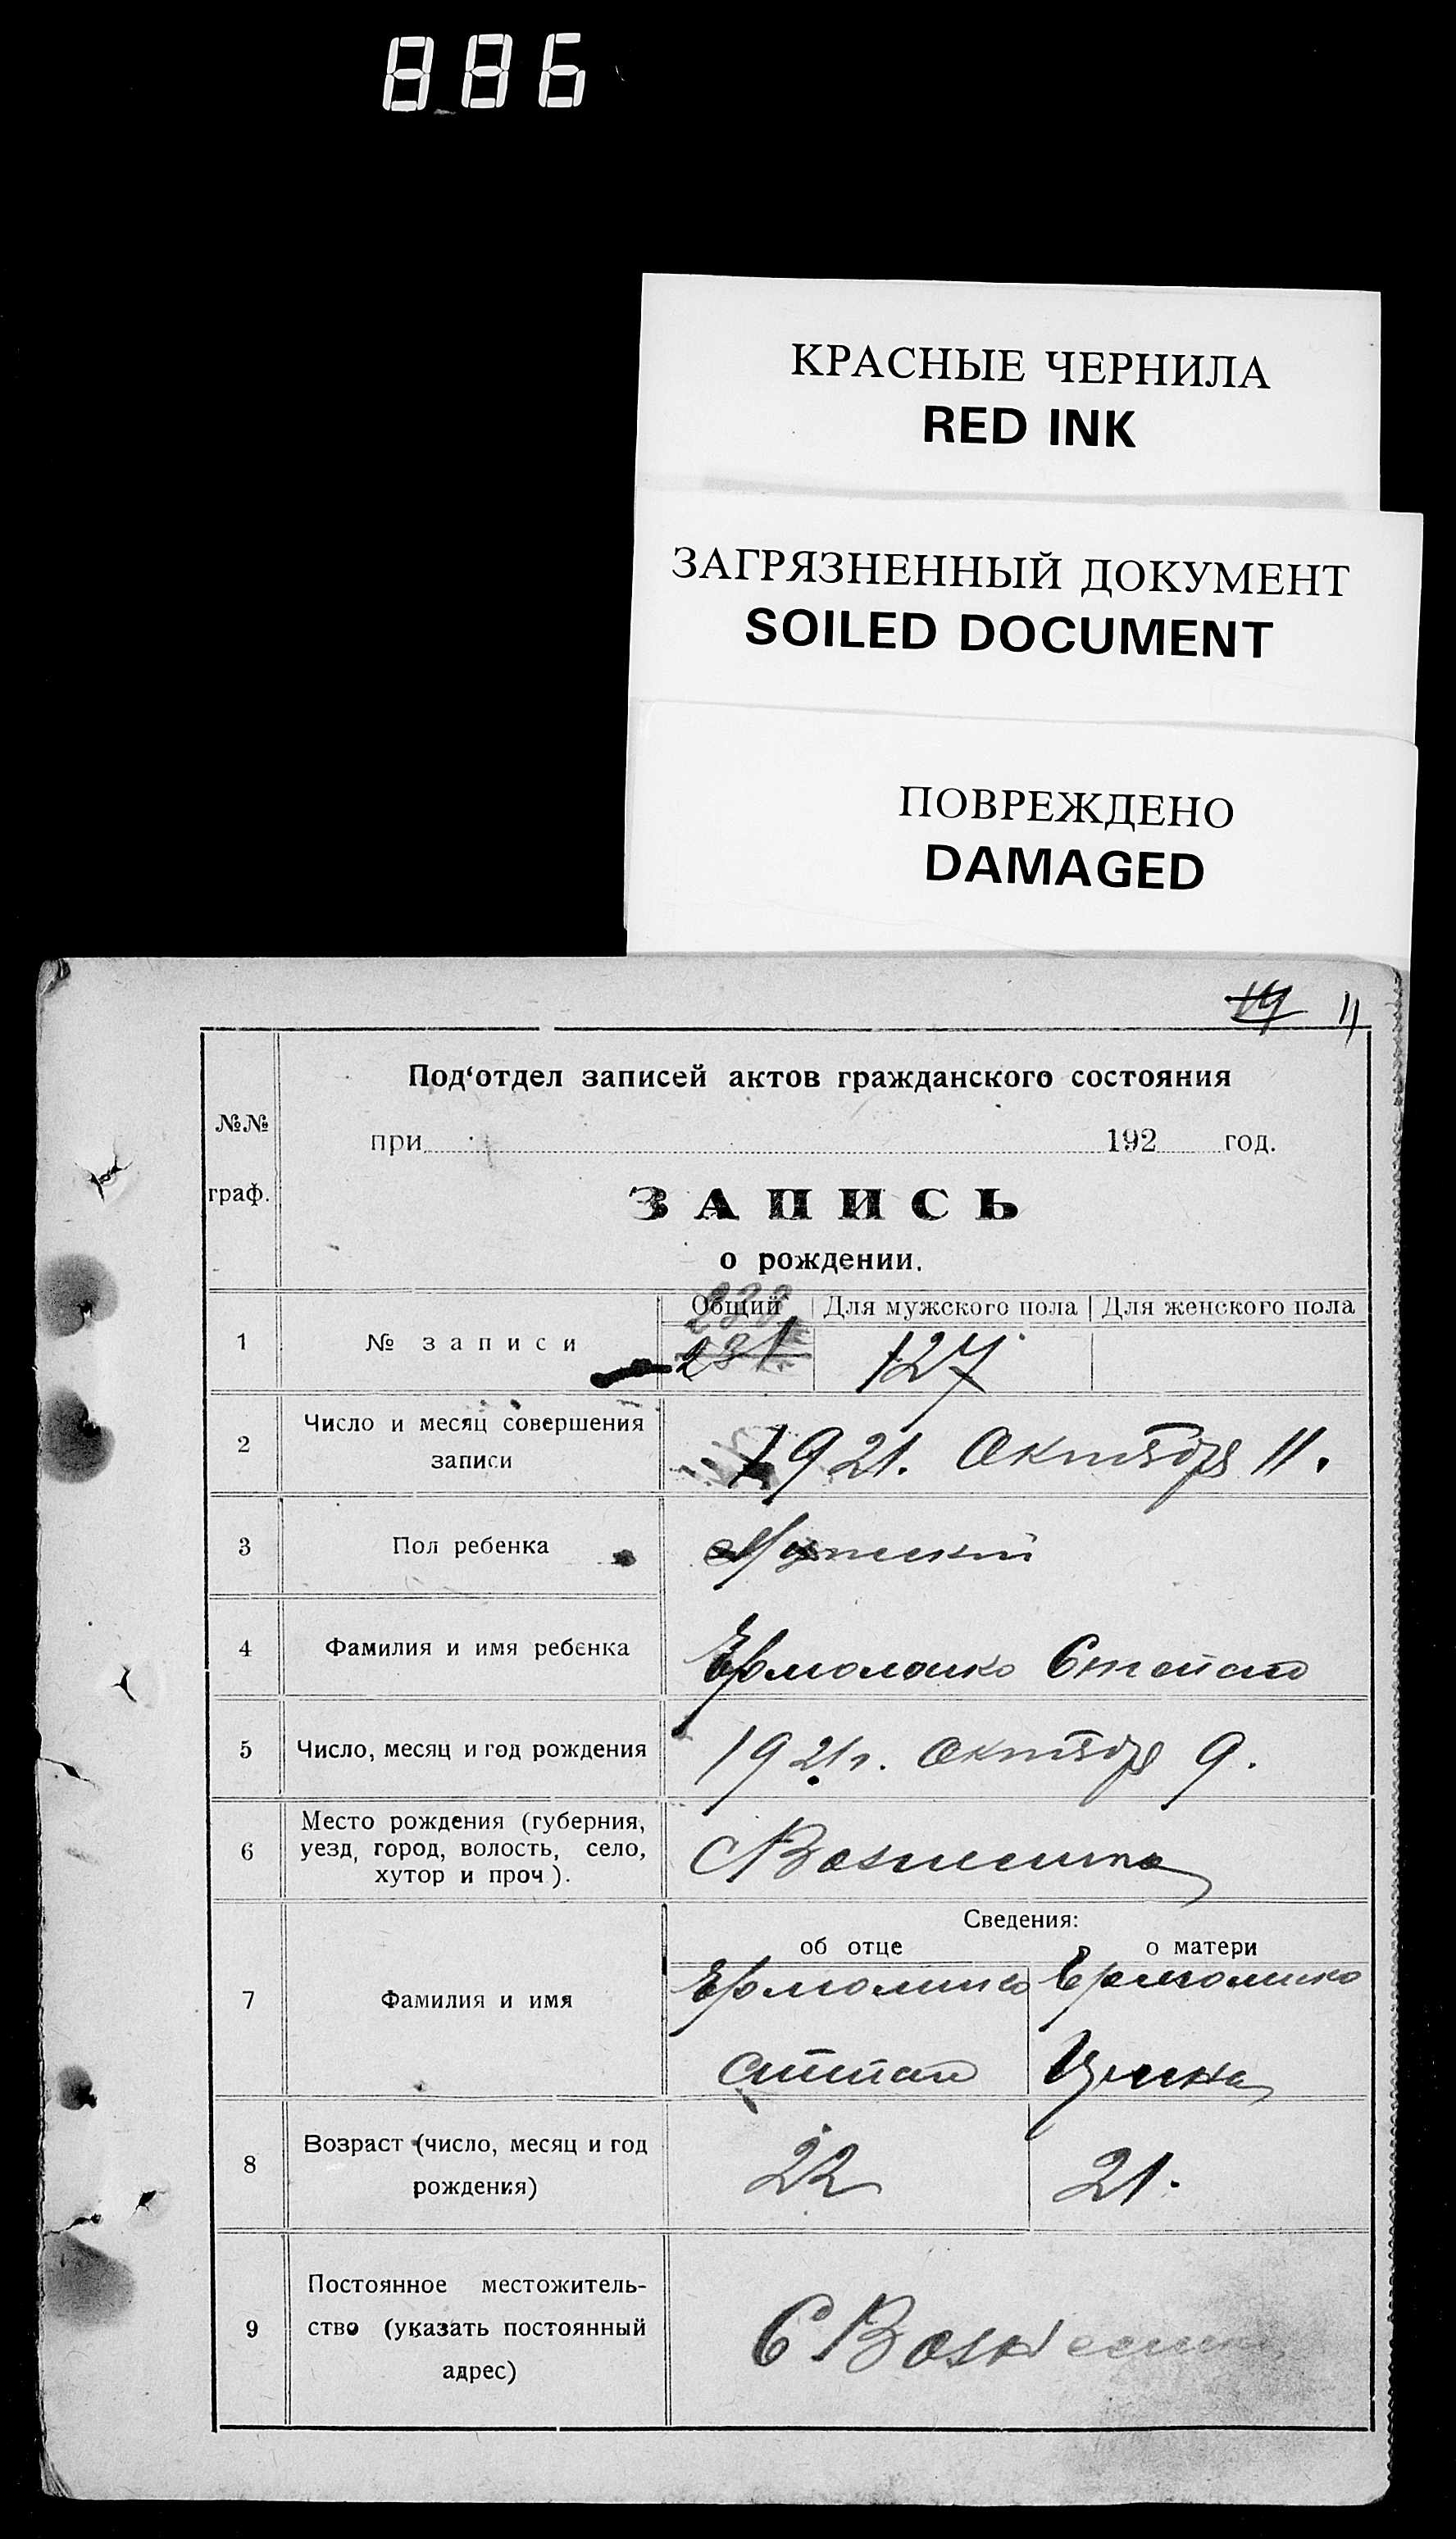 886
КРАСНЫЕ ЧЕРНИЛА
RED INK
ЗАГРЯЗНЕННЫЙ ДОКУМЕНТ
SOILED DOCUMENT
ПОВРЕЖДЕНО
DAMAGED
11
№№ граф.
Под‘отдел записей актов гражданского состояния
при 192 год.
ЗАПИСЬ
о рождении.
Общий Для мужского пола Для женского пола
1 № записи 231 127
2 Число и месяц совершения
записи
1921. Октября 11.
3 Пол ребенка Мужеский
4 Фамилия и имя ребенка Степан
5 Число, месяц и год рождения 1921г. Октября 9.
6 Место рождения (губерния,
уезд, город, волость, село,
хутор и проч).
С
Сведения:
об отце о матери
7 Фамилия и имя
Степан
8 Возраст (число, месяц и год
рождения)
22 21.
9 Постоянное местожитель-
ство (указать постоянный
адрес)
С